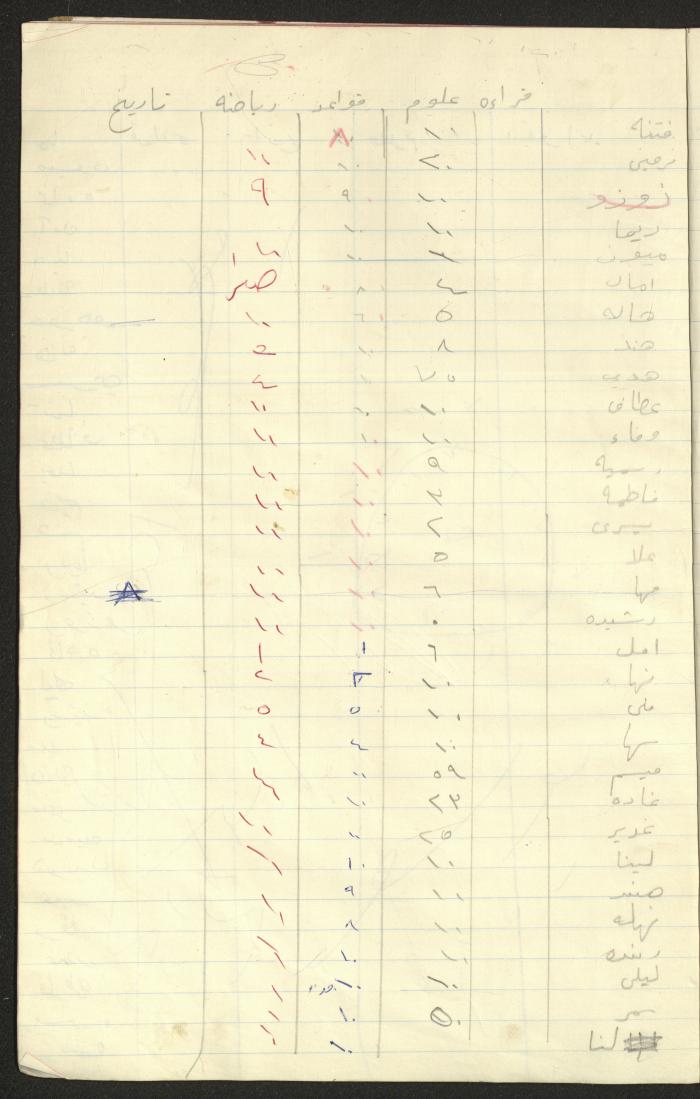 قراءه علوم قواعد رياضه تاريخ
فتنه ١٠ ٨
٢٠ ١٠ ١٠
نونو ١٠ ٩ ٩
ريما ١٠ ١٠
ميفون ١٠
امال ٤ ٨ صفر
هاله ٥ ٦ ١٠
هند ٨ ١٠ ٥
هدى ٧٥ ٤
عطاف ١٠ ١٠ ١٠
وفاء ١٠ ١٠ ١٠
سميه ٥ ١٠ ١٠
فاطمه ١٠ ١٠
يسرى ٢ ١٠ ١٠
علا ٥ ١٠ ١٠
مها ٦ ١٠ ١٠
رشيده ٠ ١٠ ١٠
امل ٦ ١ ١
نها ١٠ ٢ ٢
منى ١٠ ٥ ٥
سها ١٠ ٤ ٤
ميسم ٥٩ ١٠
غاده ٢٣ ١٠
غدير ٢٥ ١٠ ١٠
لينا ١٠ ١٠ ١٠
هند ١٠ ٩ ١٠
نهله ١٠ ٨
رنده ١٠ ١٠ ١٠
ليلى ١٠ ١٠ ١٠
سمر ٥٠ ١٠ ١٠
لنا ١٠